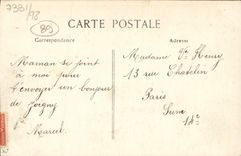 7331/93
CARTE POSTALE
89
Correspondance
Adresse
Maman se joint
à moi pour
t'envoyer un bonjour
de Joigny
Marcel
Madame Vve Henry
13 rue Chatelin
Paris
Seine
14e